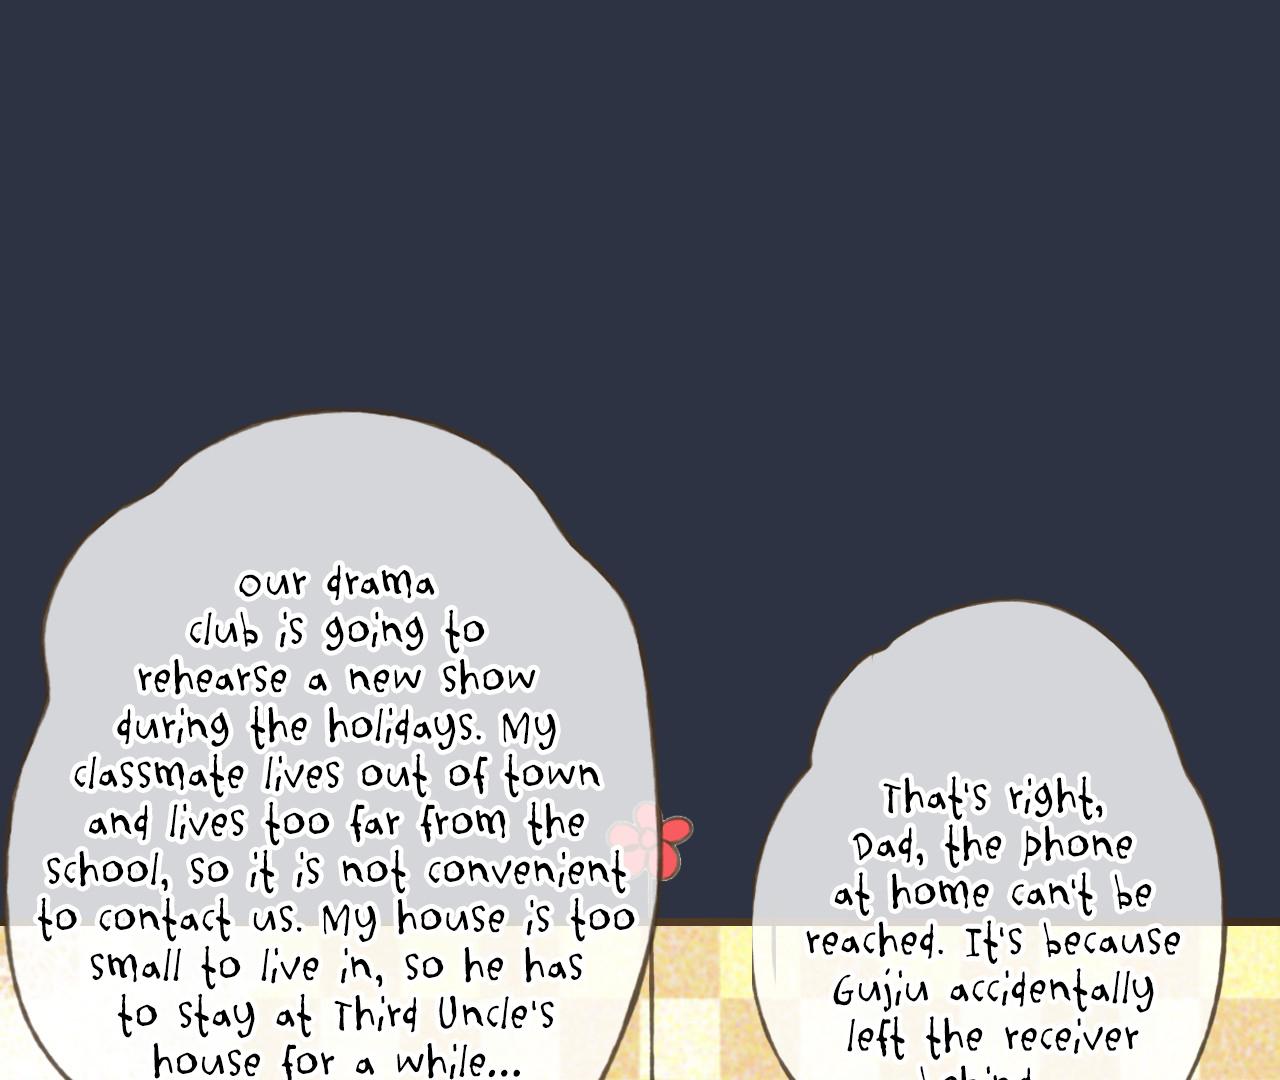 our drama
club is going to
rehearse a new show
during the holidays. My
classmate lives out of town
and lives too far from the
school, so it is not convenient
to contact us. My house is too
small to live in, so he has
to stay at Third Uncle's
house for a while...
That's right,
Dad, the phone
at home can't be
reached. It's because
Gujiu accidentally
left the receiver
behind